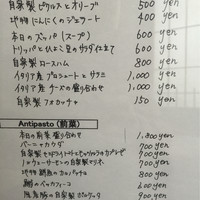 自家製ピクルスとオリーブ 500 yen
地物にんにくのジェラート 400 yen
本日のズッパ(スープ) 600 yen
トリッパとひよこ豆のサラダ仕立て 600 yen
自家製ロースハム 800 yen
イタリア産プロシュートとサラミ 1,000 yen
イタリア産チーズの盛り合わせ 1,000 yen
自家製フォカッチャ 150 yen
Antipasto(前菜)
本日の前菜盛り合わせ 1,800 yen
バーニャカウダ 700 yen
自家製セミドライトマトとモッツァレラのカプレーゼ 700 yen
900 yen
地物鮮魚のカルパッチョ 800 yen
鯛のベッカフィーコ 600 yen
自家製ポルケッタ 900 yen